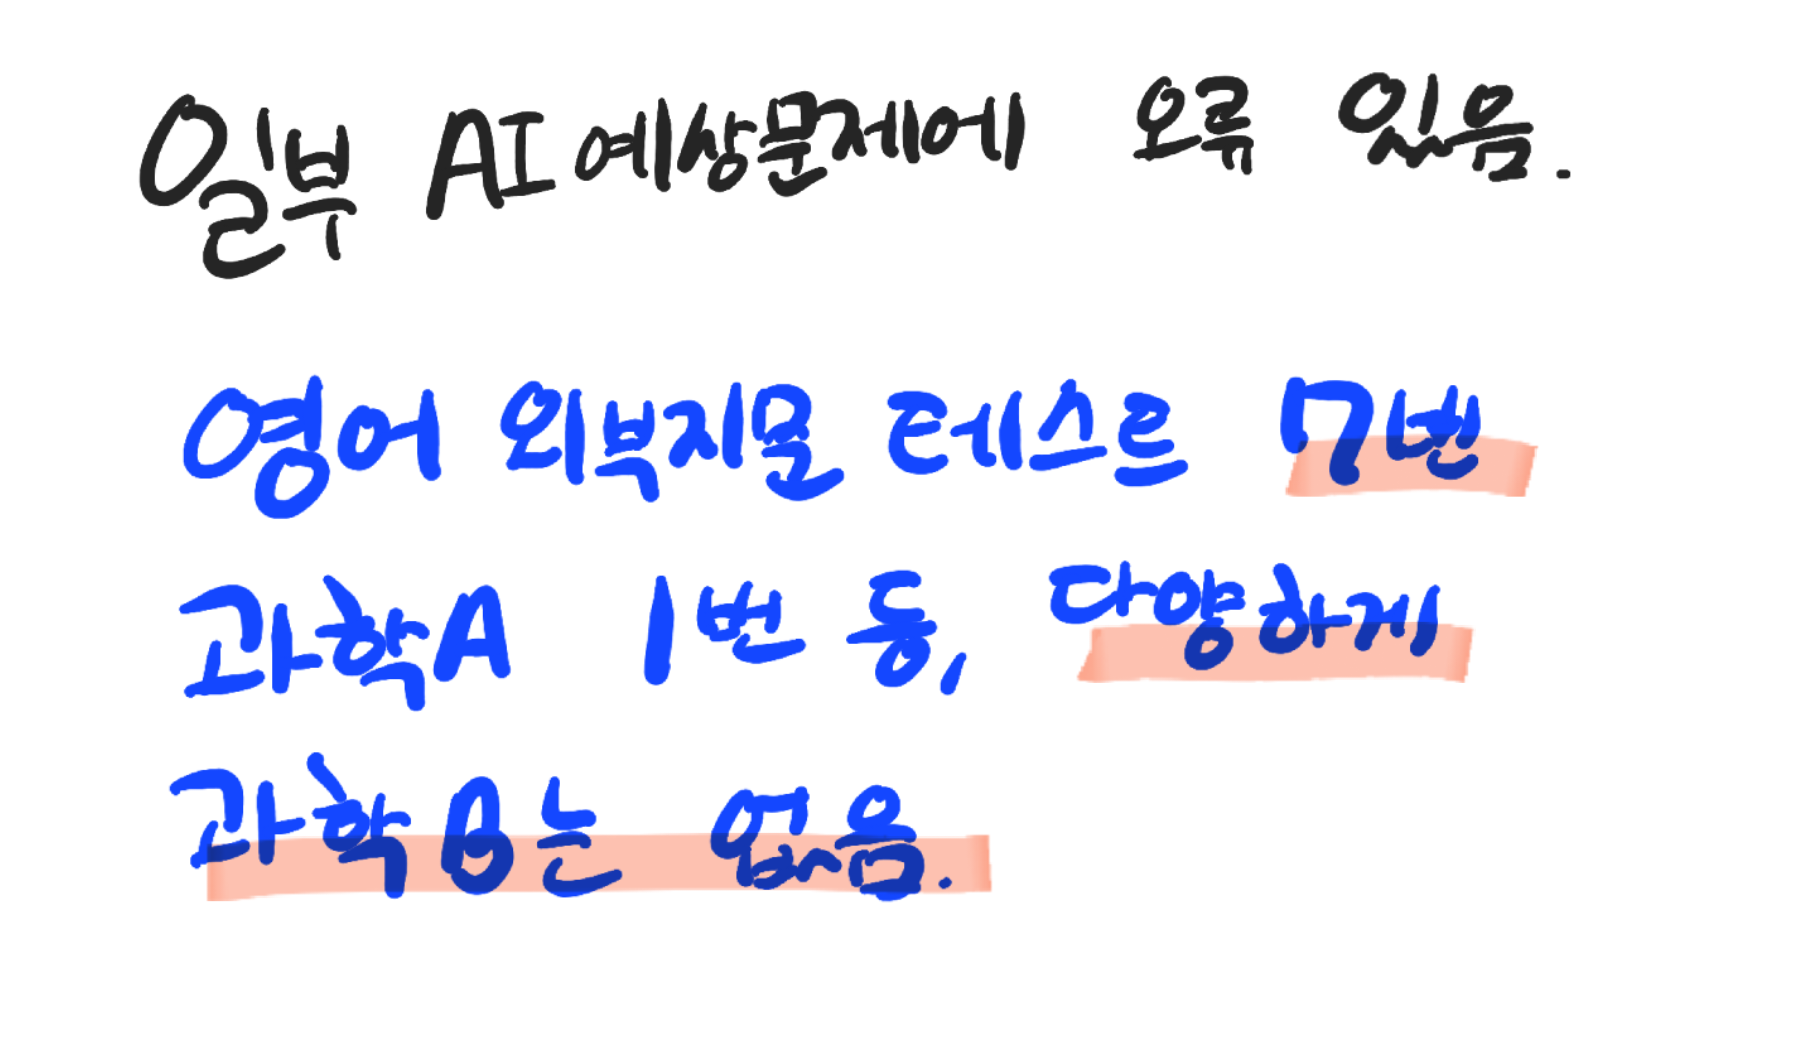 일부 AI예상문제에 오류 있음.
영어 외부지문 테스트 7번
과학A 1번 등, 다양하게
과학B는 없음.